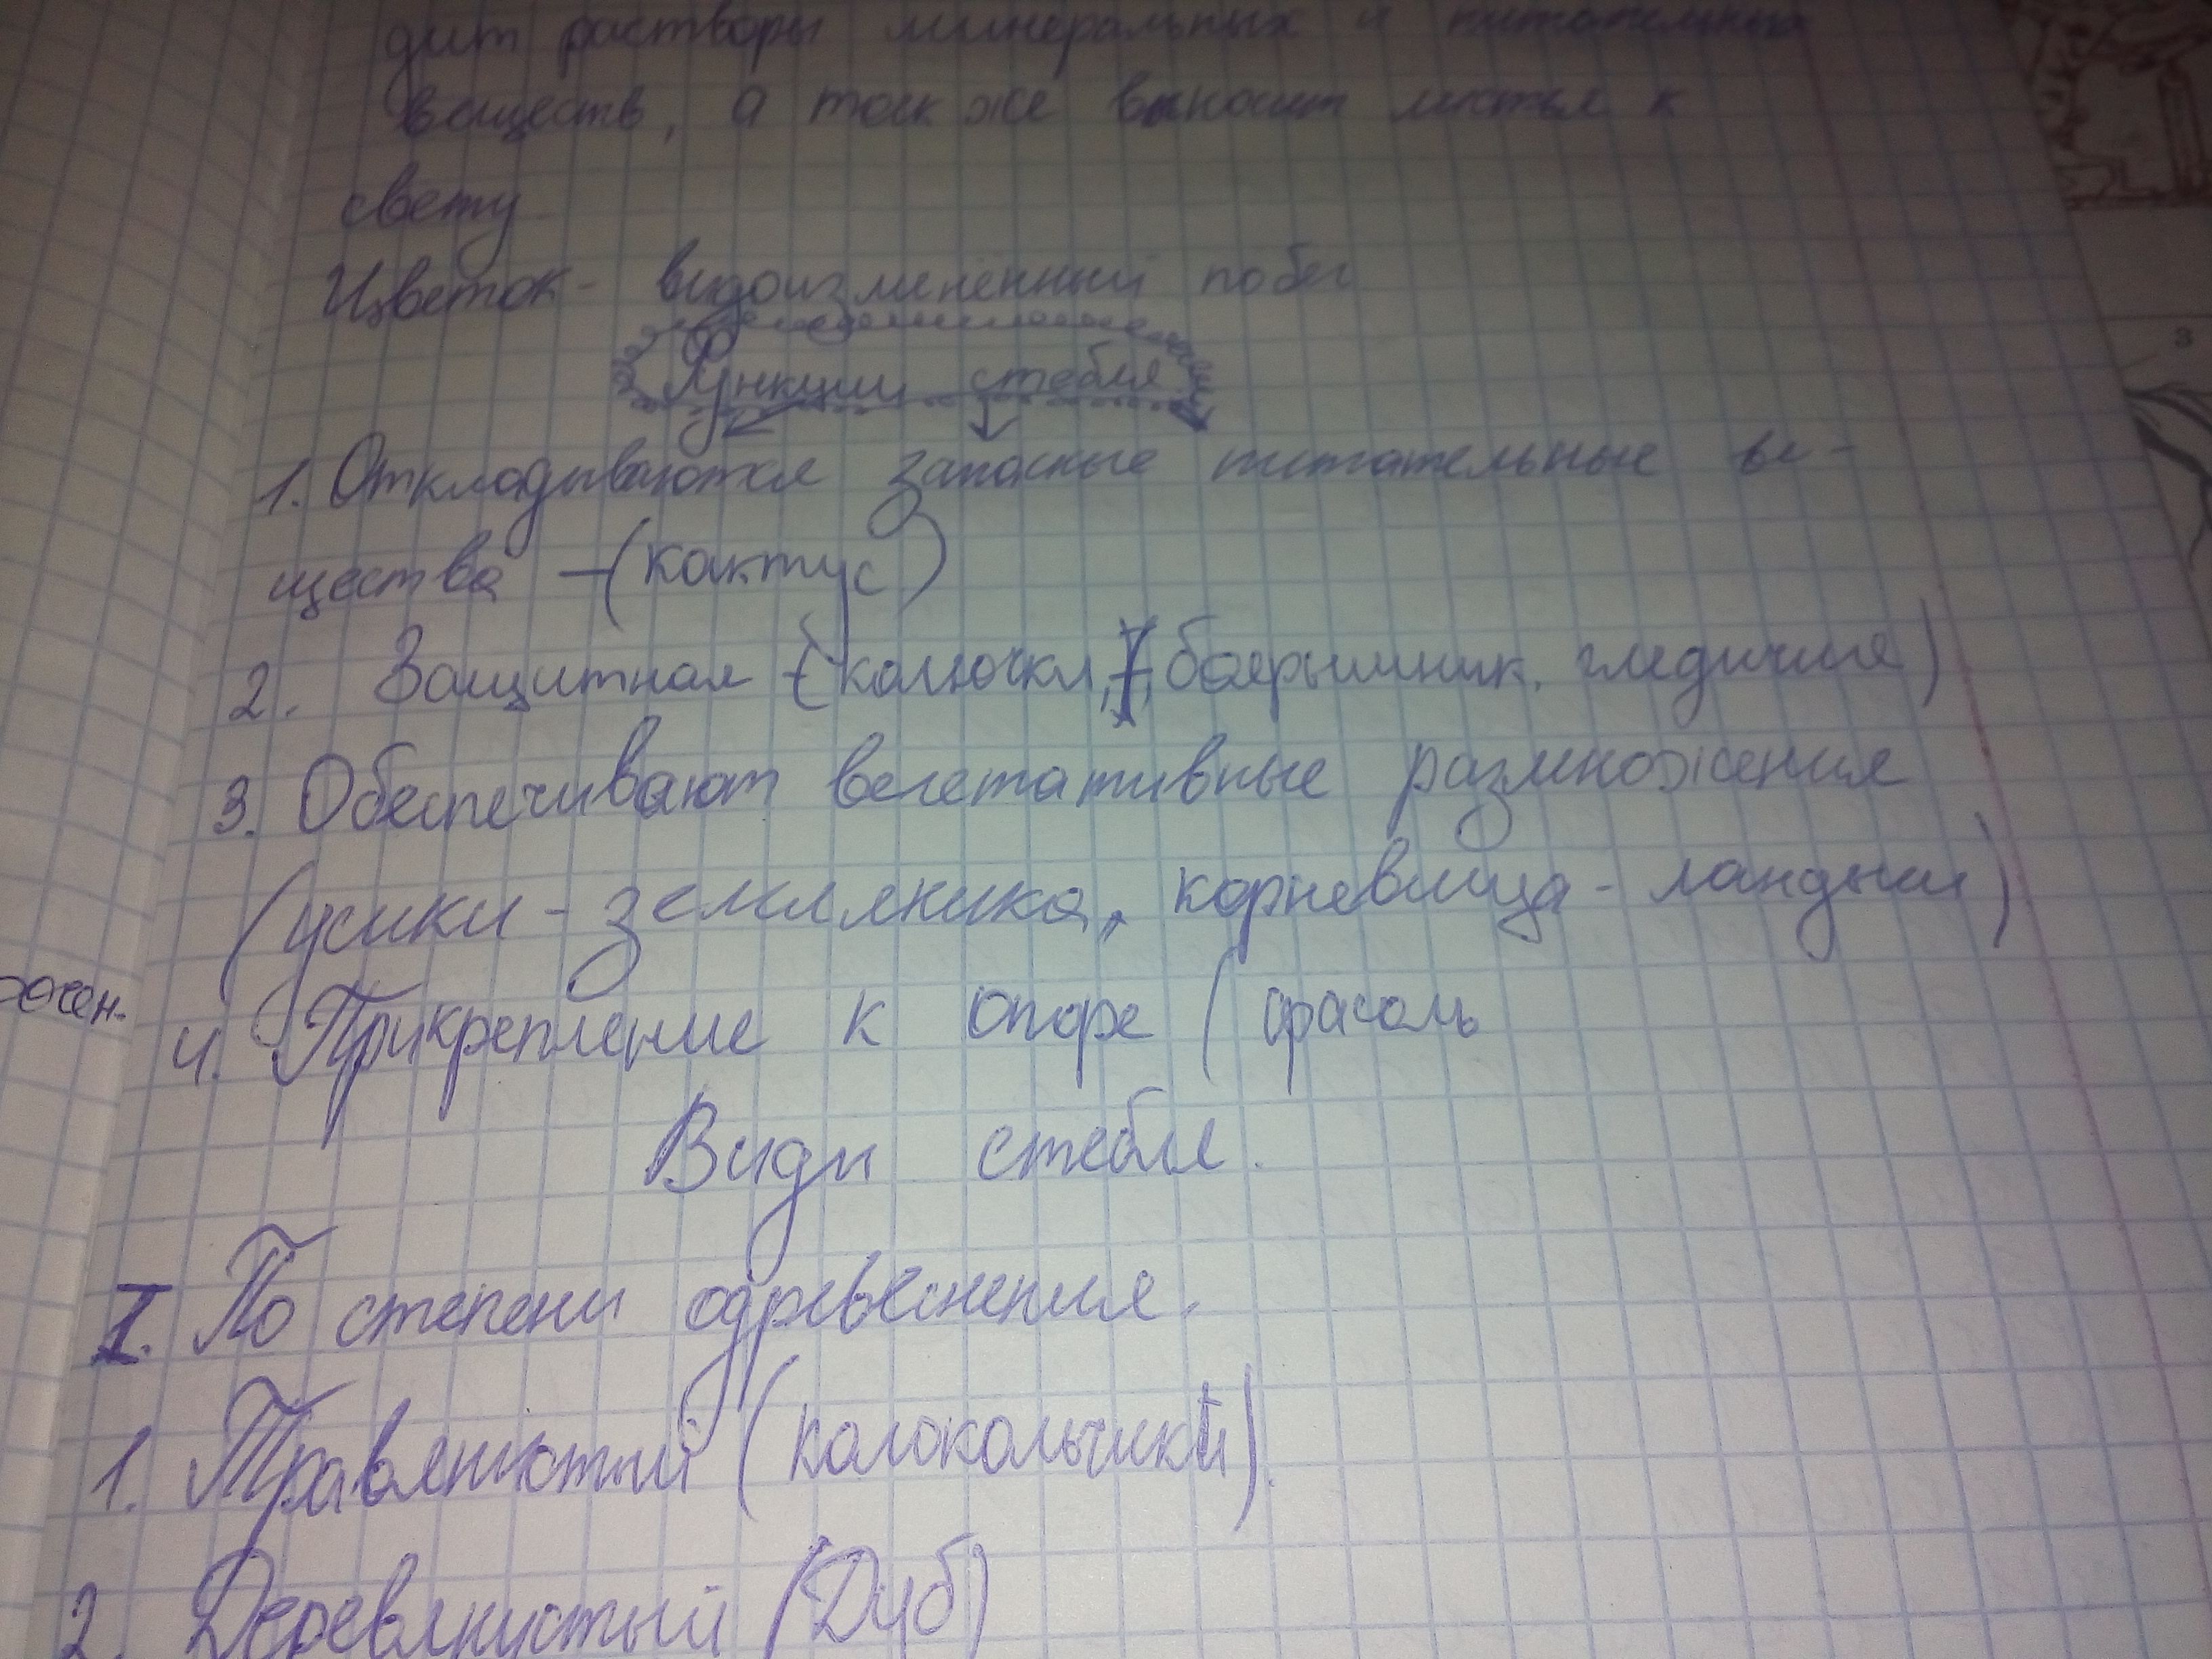 дит растворы минеральных и питательных
веществ, а так же выносит листья к
свету
Цветок - видоизменённый побег
Функции стебля
1. Откладываются запасные питательные ве-
щества - (кактус)
2. Защитная - (колючки, боярышник, гледичия)
3. Обеспечивают вегетативные размножения
(усики - земляника, корневища - ландыш)
4. Прикрепление к опоре (фасоль
Виды стебля.
I. По степени одревеснения.
1. Травянистый (колокольчики).
2. Деревянистый (Дуб)